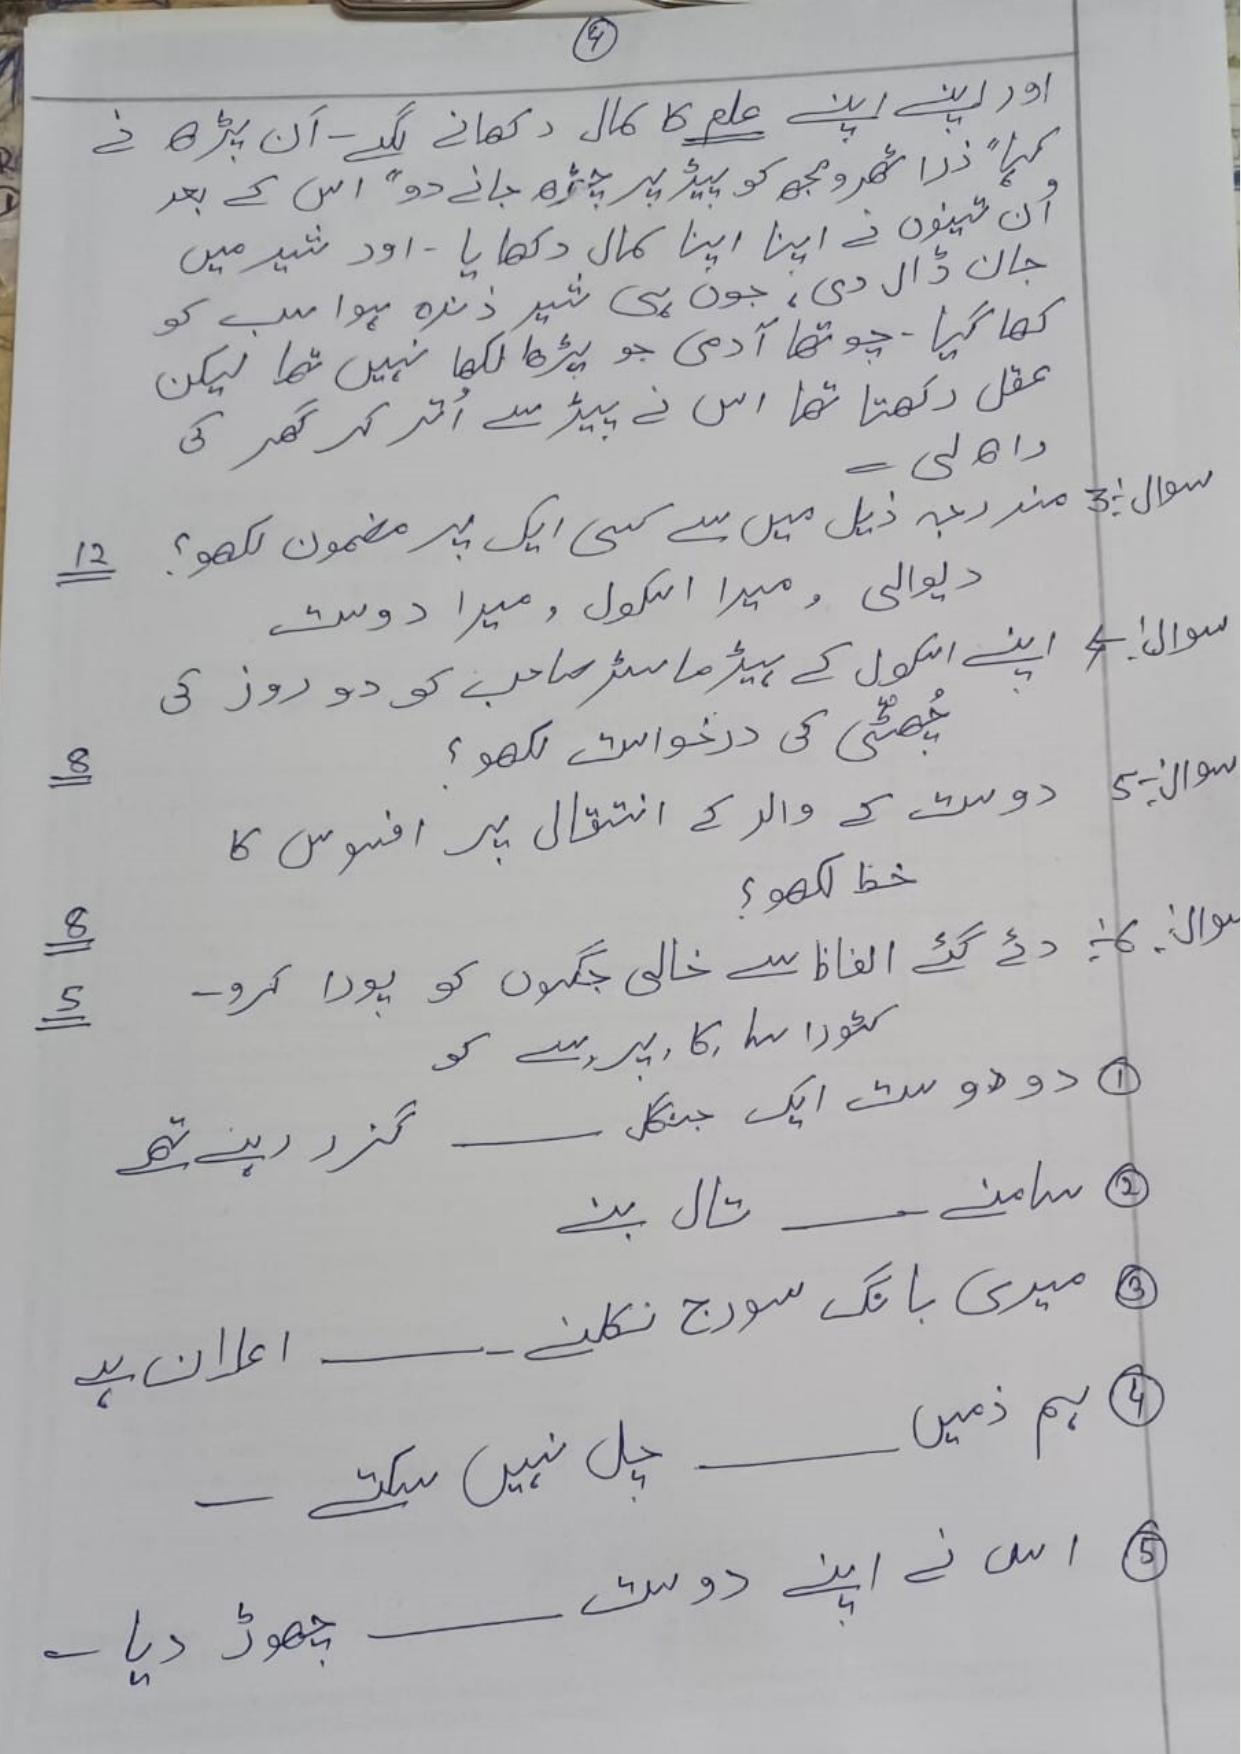 ۴
اور اپنے اپنے علم کا کمال دکھانے لگے - اَن پڑھ نے
کہا "ذرا ٹھرو مجھ کو پیڑ پر چڑھ جانے دو" اس کے بعد
اُن تینوں نے اپنا اپنا کمال دکھایا - اور شیر میں
جان ڈال دی، جوں ہی شیر ذندہ ہوا سب کو
کھا گیا - چوتھا آدمی جو پڑھا لکھا نہیں تھا لیکن
عقل رکھتا تھا اس نے پیڑ سے اُتر کر گھر کی
راہ لی -
سوال:3 مندرجہ ذیل میں سے کسی ایک پر مضمون لکھو؟ 12
دیوالی , میرا اسکول , میرا دوست
سوال:4 اپنے اسکول کے ہیڈ ماسٹر صاحب کو دو روز کی
چُھٹّی کی درخواست لکھو؟ 8
سوال:5 دوست کے والد کے انتقال پر افسوس کا
خط لکھو؟ 8
سوال:6 دئے گئے الفاظ سے خالی جگہوں کو پورا کرو - 5
کٹورا سا , کا , پر , سے کو
① دو دوست ایک جنگل ____ گزر رہے تھے
② سامنے ____ تال ہے
③ میری بانگ سورج نکلنے ____ اعلان ہے
④ ہم ذمیں ____ چل نہیں سکتے -
⑤ اس نے اپنے دوست ____ چھوڑ دیا -